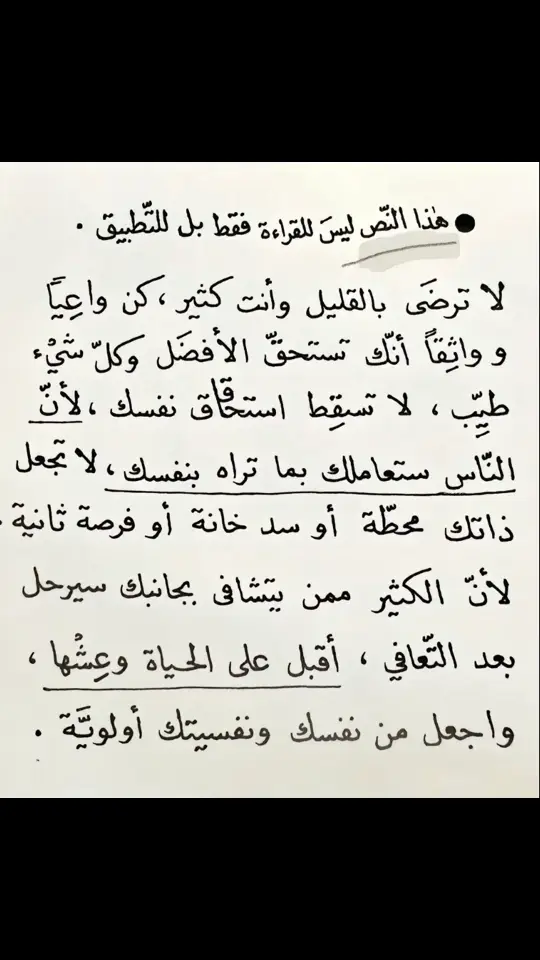 ● هٰذا النّص ليسَ للقراءة فقط بل للتّطبيق .
لا ترضَى بالقليل وأنت كثير ، كن واعِيًا
و واثِقاً أنّك تستحقّ الأفضَل وكلّ شَيْء
طيِّب ، لا تسقِط استحقاق نفسك ، لأنّ
النّاس ستعاملك بما تراه بنفسك ، لا تجعل
ذاتك محطّة أو سد خانة أو فرصة ثانية .
لأنّ الكثير ممن يتشافى بجانبك سيرحل
بعد التّعافي ، أقبل على الحياة وعِشْها ،
واجعل من نفسك ونفسيتك أولويَّة .